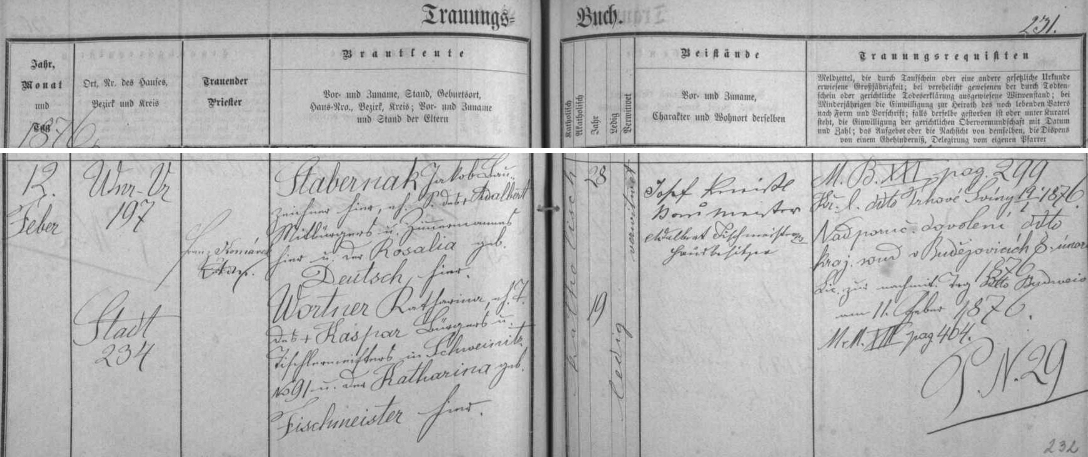 Trauungs=
Buch.
231.
Jahr,
Monat
und
Tag
1876
Ort, Nr. des Hauses,
Bezirk und Kreis
Trauender
Priester
Brautleute
Vor- und Zuname, Stand, Geburtsort,
Haus-Nro., Bezirk, Kreis; Vor- und Zuname
und Stand der Eltern
Katholisch
Akatholisch
Jahr
Ledig
Verwitwet
Beistände
Vor- und Zuname,
Charakter und Wohnort derselben
Trauungsrequisiten
Meldzettel, die durch Taufschein oder eine andere gesetzliche Urkunde
erwiesene Großjährigkeit; bei verehelicht gewesenen der durch Todten-
schein oder gerichtliche Todeserklärung ausgewiesene Witwenstand; bei
Minderjährigen die Einwilligung zur Heirath des noch lebenden Vaters
nach Form und Vorschrift; falls derselbe gestorben ist oder unter Kuratel
steht, die Einwilligung der gerichtlichen Obervormundschaft mit Datum
und Zahl; das Aufgebot oder die Nachsicht von demselben, die Dispens
von einem Ehehinderniß, Delegirung vom eigenen Pfarrer
12.
Feber
Wnr-Vr
197
Stadt
234
Stabernak Jakob
Zeichner hier, eh. S. des Adalbert
Mitbürgers u. Zimermannes
hier u. der Rosalia geb.
Deutsch, hier.
Wortner Katharina, eh. T.
des + Kaspar Bürgers u.
Tischlermeisters in Schweinitz
No 91 u. der Katharina geb.
Fischmeister hier.
katholisch
28
19
ledig
Josef
Baumeister
Adalbert Fischmeister
Hausbesitzer
M. B. XIII pag. 299
dtto Trhové Sviny 19/1 1876.
Nadporuč. dovolení dtto
kraj. soud v Budějovicích 8. února
1876
Tag dtto Budweis
am 11. Feber 1876.
XIII pag 464.
P. N. 29
232